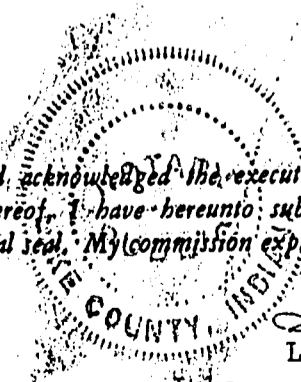 d acknowledged the execut
ereof, I have hereunto sub
al seal. My commission exp
KE COUNTY, INDIA
L